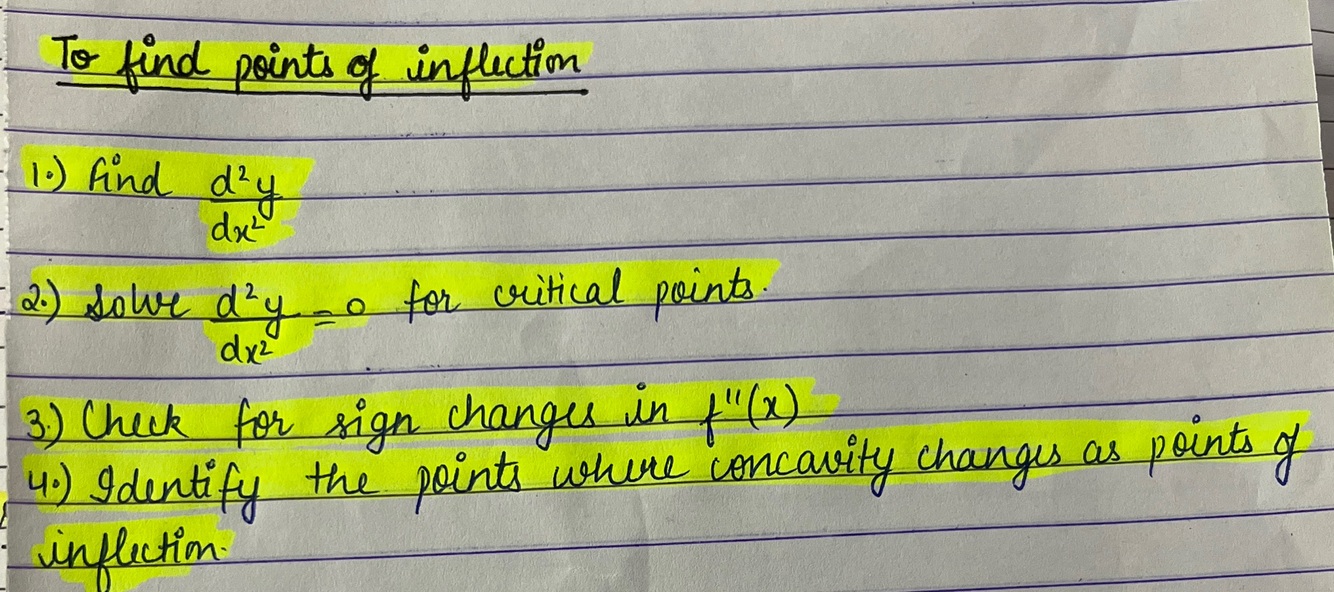 To find points of inflection
1.) find d²y/dx²
2.) Solve d²y/dx² = 0 for critical points.
3.) Check for sign changes in f"(x)
4.) Identify the points where concavity changes as points of
inflection.